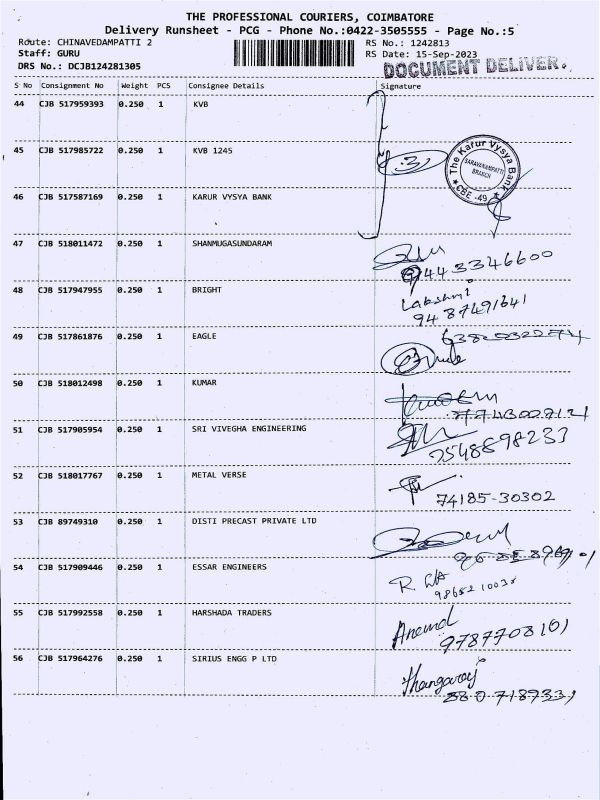 THE PROFESSIONAL COURIERS, COIMBATORE
Delivery Runsheet - PCG - Phone No.:0422-3505555 - Page No.:5
Route: CHINAVEDAMPATTI 2
RS No.: 1242813
Staff: GURU
RS Date: 15-Sep-2023
DRS No.: DCJB124281305
DOCUMENT DELIVER.
S No Consignment No Weight PCS Consignee Details Signature
44 CJB 517959393 0.250 1 KVB
45 CJB 517985722 0.250 1 KVB 1245
The Karur Vysya Bank
SARAVANAMPATTI
BRANCH
CBE -49
46 CJB 517587169 0.250 1 KARUR VYSYA BANK
47 CJB 518011472 0.250 1 SHANMUGASUNDARAM
9443346600
48 CJB 517947955 0.250 1 BRIGHT
Lakshmi
9487491641
49 CJB 517861876 0.250 1 EAGLE
50 CJB 518012498 0.250 1 KUMAR
51 CJB 517905954 0.250 1 SRI VIVEGHA ENGINEERING
7548698233
52 CJB 518017767 0.250 1 METAL VERSE
74185-30302
53 CJB 89749310 0.250 1 DISTI PRECAST PRIVATE LTD
54 CJB 517909446 0.250 1 ESSAR ENGINEERS
55 CJB 517992558 0.250 1 HARSHADA TRADERS
Anand
9787708101
56 CJB 517964276 0.250 1 SIRIUS ENGG P LTD
Thangaraj